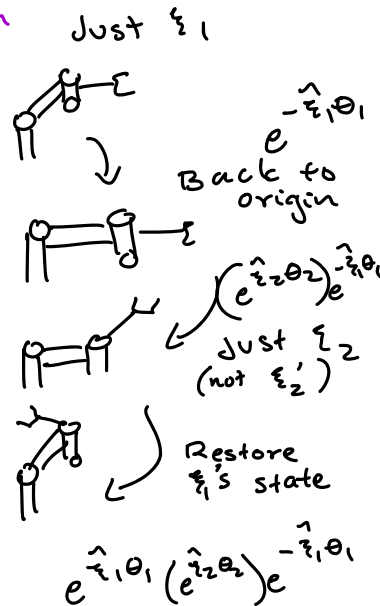 Just ξ₁
e^{-ξ̂₁θ₁}
Back to
origin
(e^{ξ̂₂θ₂})e^{-ξ̂₁θ₁}
Just ξ₂
(not ξ₂')
Restore
ξ₁'s state
e^{ξ̂₁θ₁}(e^{ξ̂₂θ₂})e^{-ξ̂₁θ₁}